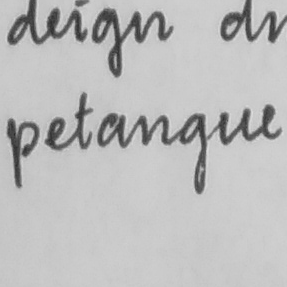 deign
petanque